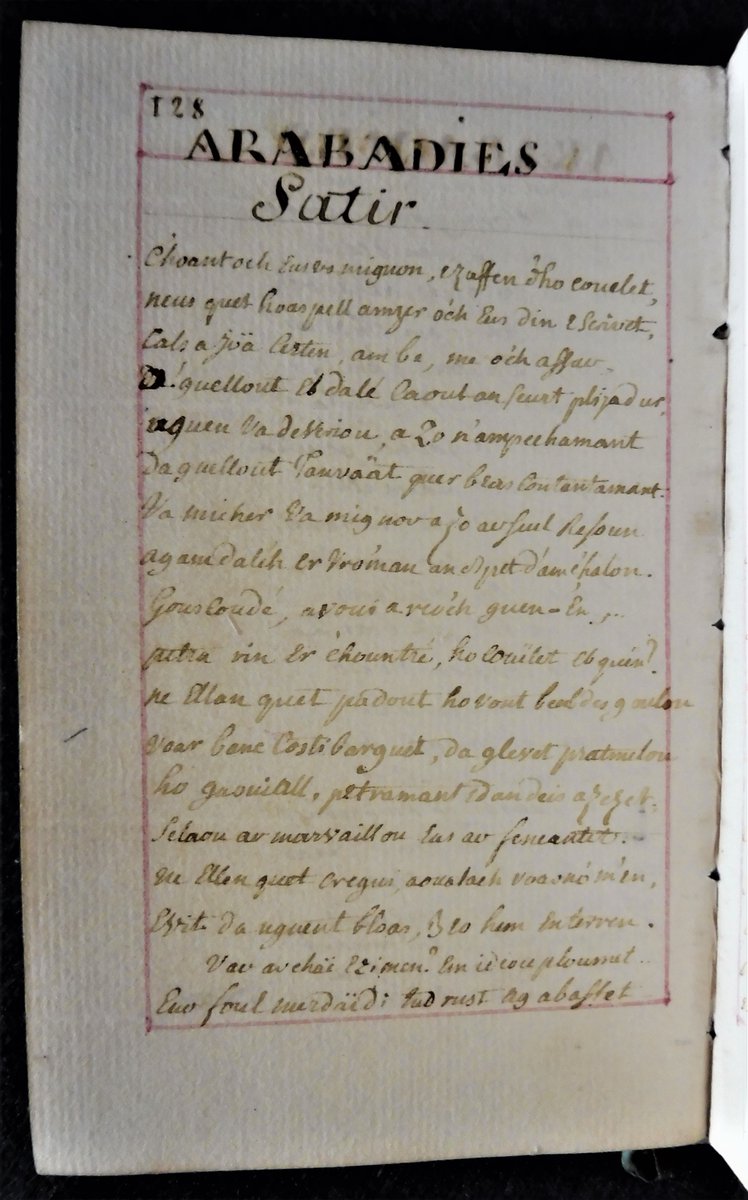 128
ARABADIES
Satir
C'hoant och Eus va mignon, ezaffen d'ho couelet,
neus quet hoas pell amzer o'ch Eus din Escrivet,
Cals a Joä Certen, am be, me o'ch assur
D'a quellout Eb dalé Caout an seurt plijadur,
nquen va deveriou, a Zo n'ampechamant
Da quellout quer bras Contantamant.
Va micher va mignon a zo ar seul Resoun
agam dalch Er vro'man an despet d'am c'halon.
Gouscoudé, a voui a reoc'h guen-En,
petra rin Er c'hountré, ho couïlet Eb quén?
ne Ellan quet padout ho vont beul des goulou
voar banc Costi barguet, da glevet pratmelou
ho gaouiall, petramant
Selaou ar marvaillou Eus ar feneantet.
ne Ellen quet Cregui, aoualach voar
Evit da uguent bloas, Beo hem Enterren.
Var ar chaï Ezimen? Em ideou plounet
Eur foul tud rust ag abasset